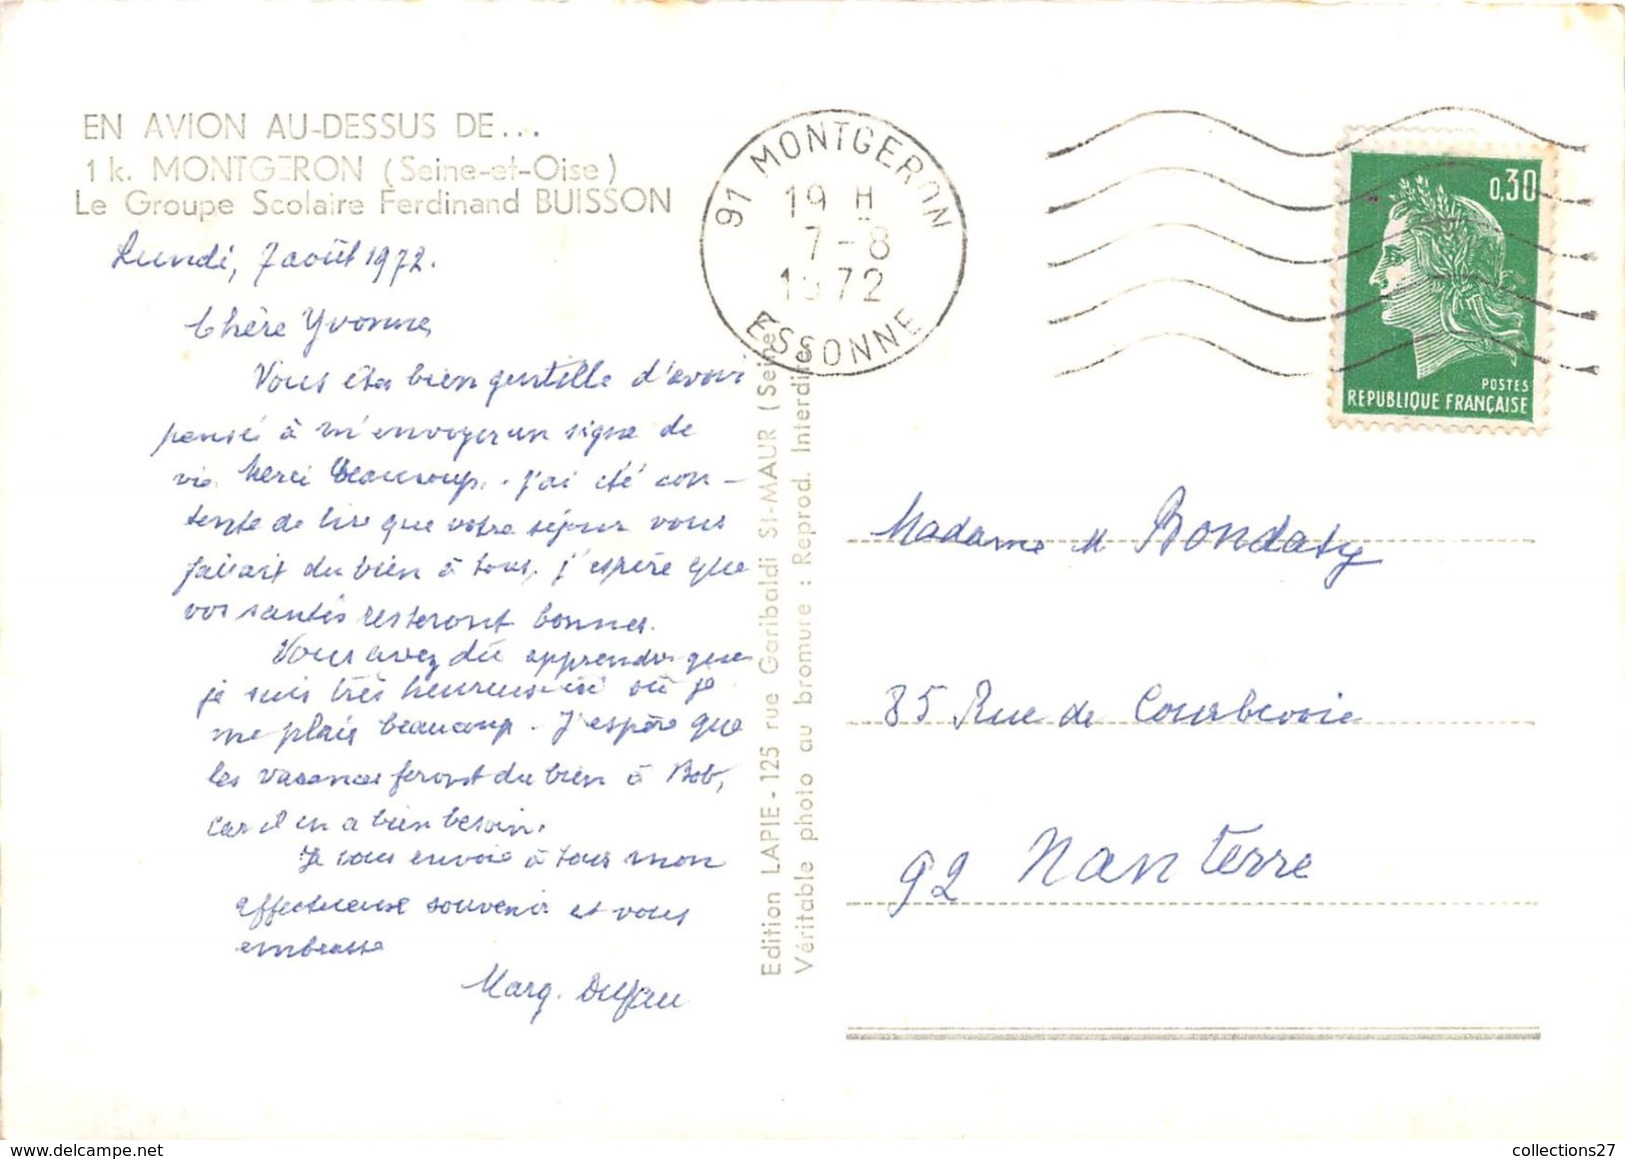 EN AVION AU-DESSUS DE...
1 k. MONTGERON (Seine-et-Oise)
Le Groupe Scolaire Ferdinand BUISSON
Lundi, 7 août 1972.
Chère Yvonne,
Vous êtes bien gentille d'avoir
pensé à m'envoyer un signe de
vie. Merci beaucoup. J'ai été con-
tente de lire que votre séjour vous
faisait du bien à tous, j'espère que
vos santés resteront bonnes.
Vous avez dû apprendre que
je suis très heureuse ici où je
me plais beaucoup. J'espère que
les vacances feront du bien à Bob,
car il en a bien besoin.
Je vous envoie à tous mon
affectueuse souvenir et vous
embrasse
Marg. Dufau
Edition LAPIE - 125 rue Garibaldi St-MAUR (Seine)
Véritable photo au bromure : Reprod. Interdite
91 MONTGERON
19 H
7-8
1972
ESSONNE
0,30
POSTES
REPUBLIQUE FRANÇAISE
Madame M Bondaty
85 Rue de Courbevoie
92 Nanterre
collections27